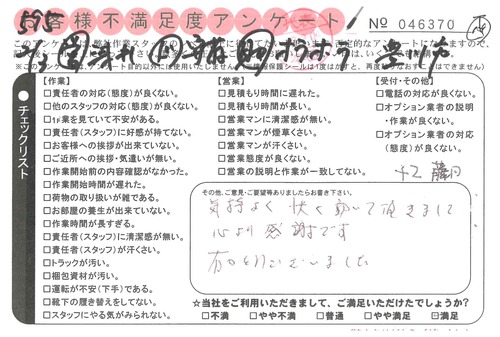 お客様不満足度アンケート
595
No 046370
【作業】
□責任者の対応(態度)が良くない。
□他のスタッフの対応(態度)が良くない。
□1F業を見ていて不安がある。
□責任者(スタッフ)に好感が持てない。
□お客様への挨拶が出来ていない。
□ご近所への挨拶・気遣いが無い。
□作業開始前の内容確認がなかった。
□作業開始時間が遅れた。
□荷物の取り扱いが雑である。
□お部屋の養生が出来ていない。
□作業時間が長すぎる。
□責任者(スタッフ)に清潔感が無い。
□責任者(スタッフ)が汗くさい。
□トラックが汚い。
□梱包資材が汚い。
□運転が不安(下手)である。
□靴下の履き替えをしてない。
□スタッフにやる気がみられない。
【営業】
□見積もり時間に遅れた。
□見積もり時間が長い。
□営業マンに清潔感が無い。
□営業マンが煙草くさい。
□営業マンが汗くさい。
□営業態度が良くない。
□営業の説明と作業が食い違っていた。
【受付・その他】
□電話の対応が良くない。
□オプション業者の説明
・作業が良くない。
□オプション業者の対応
(態度)が良くない。
チェックリスト
その他、ご意見・ご要望等ありましたらお書き下さい。
気持よく 快く動いて頂きまして
心より感謝です
有りがとうございました
☆当社をご利用いただきまして、ご満足いただけたでしょうか?
□不満 □やや不満 □普通 □やや満足 ☑満足